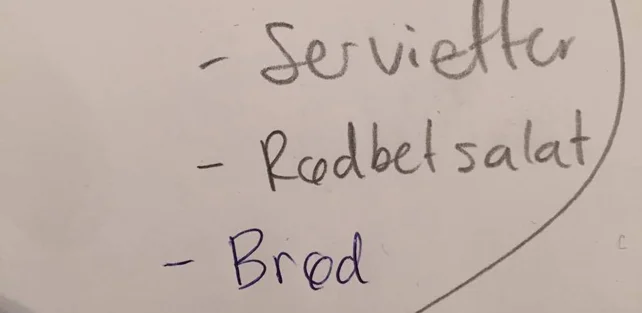 - Servietter
- Rødbetsalat
- Brød